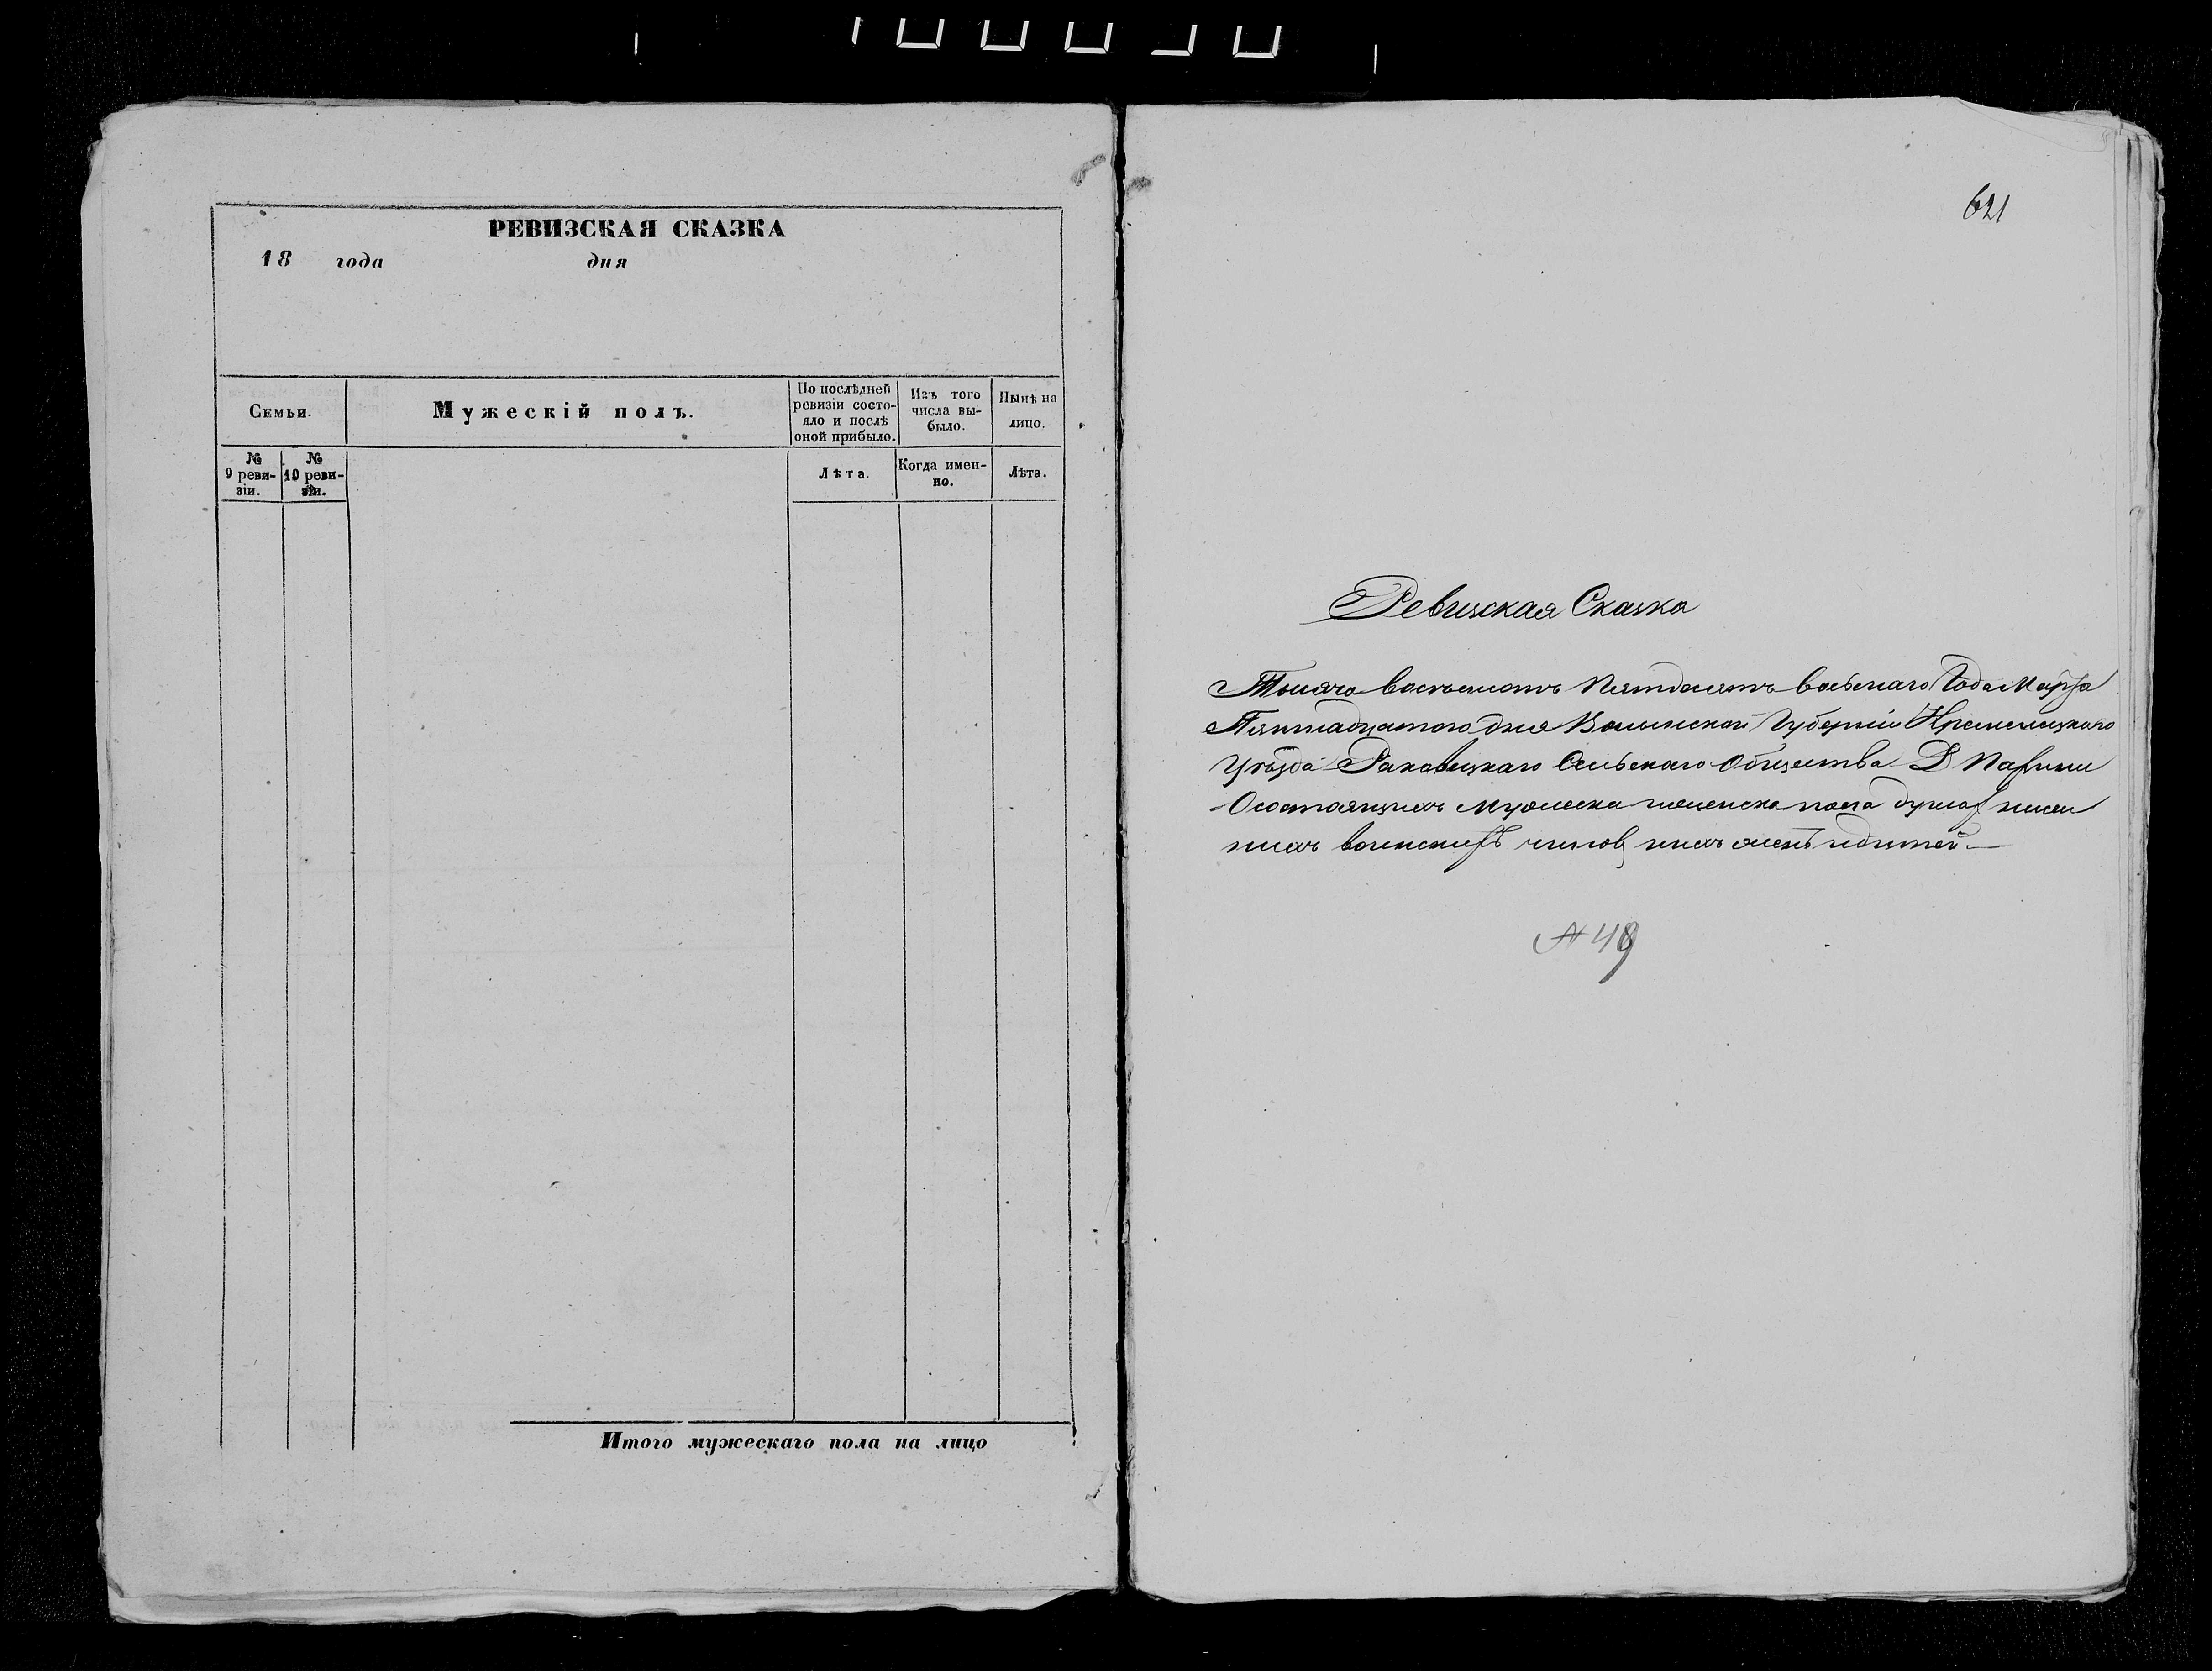 РЕВИЗСКАЯ СКАЗКА
18 года дня
Семьи.
Мужескій полъ.
По послѣдней
ревизіи состо-
яло и послѣ
оной прибыло.
Изъ того
числа вы-
было.
Нынѣ на
лицо.
№
9 реви-
зіи.
№
10 реви-
зіи.
Лѣта.
Когда имен-
но.
Лѣта.
Итого мужескаго пола на лицо
621
Ревизская Сказка
Тысяча восемьсотъ Пятдесятъ восьмаго Года Марта
Пятнадцатого дня Волынской Губерніи Кременецкаго
Уѣзда Раковецкаго Сельскаго Общества Д
Осостоящихъ мужеска женска пола душах
нихъ воинскихъ чинов, женъ идѣтей.—
№ 49